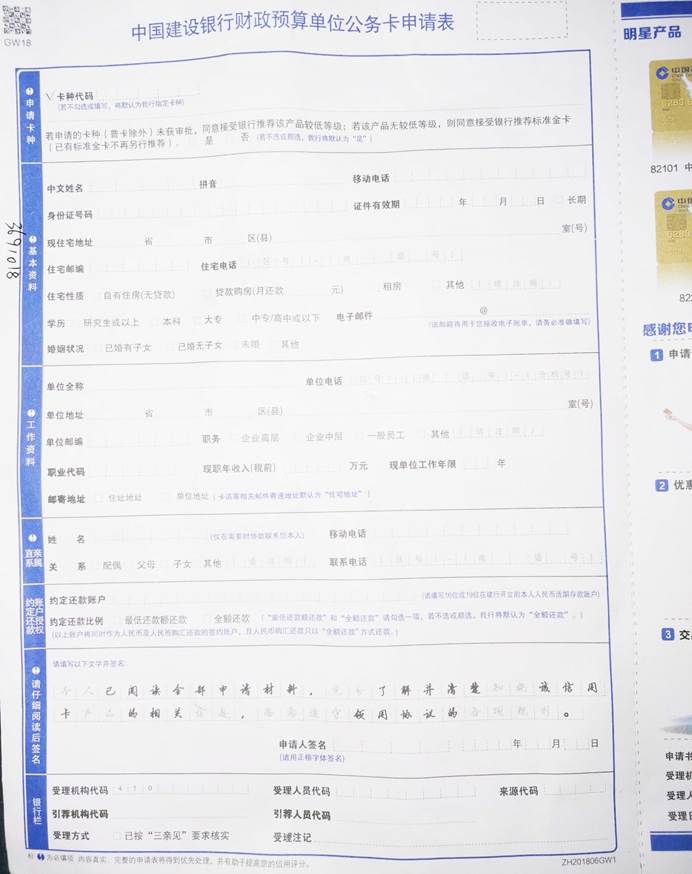 GW18
中国建设银行财政预算单位公务卡申请表
申请卡种
√ 卡种代码
(若不勾选或填写，将默认为我行指定卡种)
若申请的卡种（普卡除外）未获审批，同意接受银行推荐该产品较低等级；若该产品无较低等级，则同意接受银行推荐标准金卡
（已有标准金卡不再另行推荐）。 是 否 (若不选或都选，我行将默认为“是”)
3691018
基本资料
中文姓名 拼音 移动电话
身份证号码 证件有效期 年 月 日 长期
现住宅地址 省 市 区(县) 室(号)
住宅邮编 住宅电话 区号 - 电话号
住宅性质 自有住房(无贷款) 贷款购房(月还款 元) 租房 其他 (请注明)
学历 研究生或以上 本科 大专 中专/高中或以下 电子邮件 @
(该邮箱将用于您接收电子账单，请务必准确填写)
婚姻状况 已婚有子女 已婚无子女 未婚 其他
工作资料
单位全称 单位电话
单位地址 省 市 区(县) 室(号)
单位邮编 职务 企业高层 企业中层 一般员工 其他 (请注明)
职业代码 现职年收入(税前) 万元 现单位工作年限 年
邮寄地址 住宅地址 单位地址
直系亲属
姓 名 (仅在需要时协助联系您本人) 移动电话
关 系 配偶 父母 子女 其他 联系电话
约定还款账户授权
约定还款账户 (请填写16位或19位在建行开立的本人人民币活期存款账户)
约定还款比例 最低还款额还款 全额还款 (“最低还款额还款”和“全额还款”请勾选一项，若不选或都选，我行将默认为“全额还款”。)
(以上账户将同时作为人民币及人民币购汇还款的签约账户，且人民币购汇还款只以“全额还款”方式还款。)
请仔细阅读后签名
请填写以下文字并签名:
本人已阅读全部申请材料，充分了解并清楚知晓该信用
卡产品的相关信息，愿意遵守领用协议的各项规则。
申请人签名 年 月 日
(请用正楷字体签名)
银行栏
受理机构代码 410 受理人员代码 来源代码
引荐机构代码 引荐人员代码
受理方式 已按“三亲见”要求核实 受理注记
为必填项 内容真实、完整的申请表将得到优先处理，并有助于提高您的信用评分。
ZH201806GW1
明星产品
82101 中
82
感谢您
1 申请
2 优惠
3 交
申请书
受理机
受理人
受理日